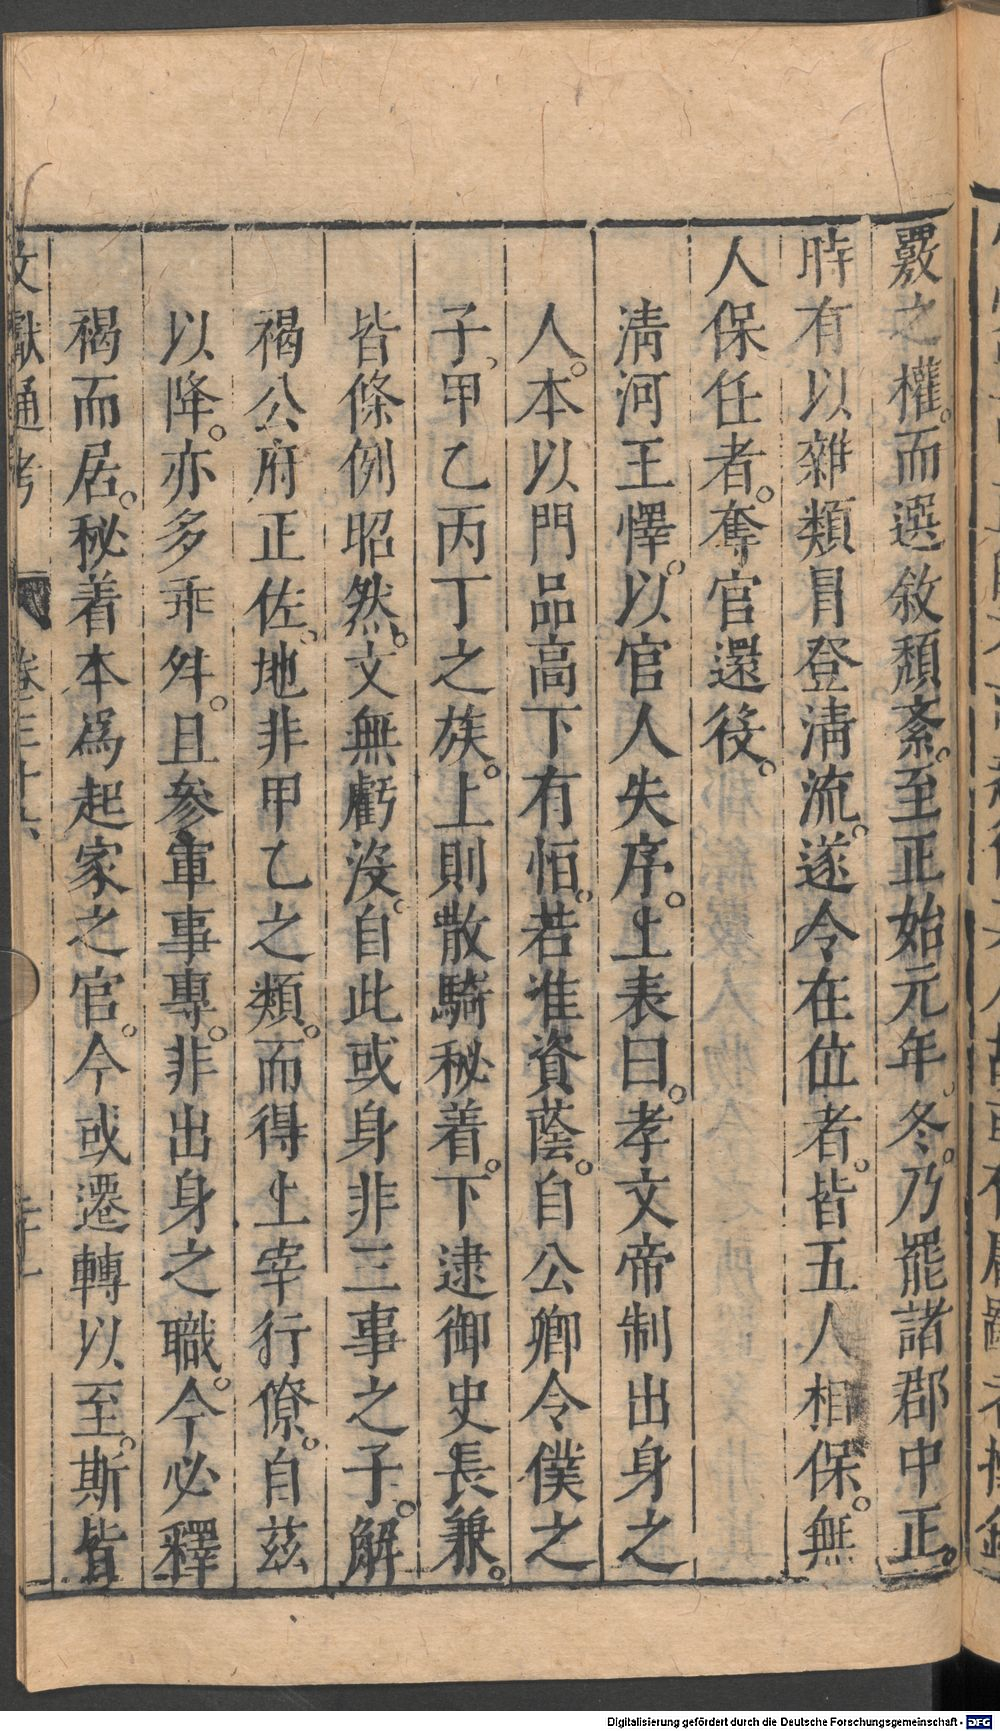 覈之權。而選敘頹紊。至正始元年、冬。乃罷諸郡中正。
時有以雜類冐登淸流。遂令在位者。皆五人相保。無
人保任者。奪官還役。
淸河王懌。以官人失序。上表曰。孝文帝制出身之
人。本以門品高下有恒。若準資蔭。自公卿令僕之
子、甲乙丙丁之族。上則散騎秘着。下逮御史長兼。
皆條例昭然。文無虧沒。自此或身非三事之子。解
褐公府正佐。地非甲乙之類。而得上宰行僚。自茲
以降。亦多乖舛。且參軍事專。非出身之職。今必釋
褐而居。秘着本爲起家之官。今或遷轉以至。斯皆
文獻通考 卷三十六
Digitalisierung gefördert durch die Deutsche Forschungsgemeinschaft - DFG